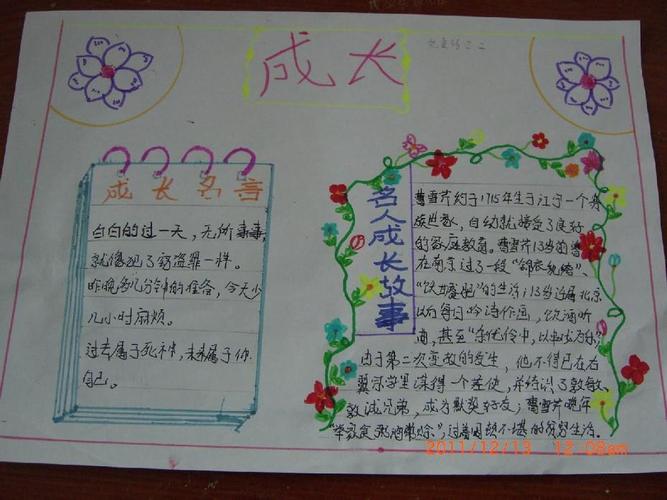 成长
成长名言
白白的过一天，无所事事，
就像犯了窃盗罪一样。
昨晚多几分钟的准备，今天少
几小时麻烦。
过去属于死神，未来属于你
自己。
名人成长故事
曹雪芹约于1715年生于江宁一个
族世家，自幼就接受了良好
的家庭教育。曹雪芹13岁前曾
在南京过了一段“锦衣纨绔”、
的生活；13岁迁居北京
以后每日吟诗作画，饮酒听
曲，甚至“杂优伶中，
由于第二次变故的发生，他不得已在右
翼宗学里谋得一个差使，并结识了敦敏、
敦诚兄弟，成为默契好友；曹雪芹晚年
“举家食粥 ”，过着困顿不堪的贫穷生活。
2011/12/13 12:08am